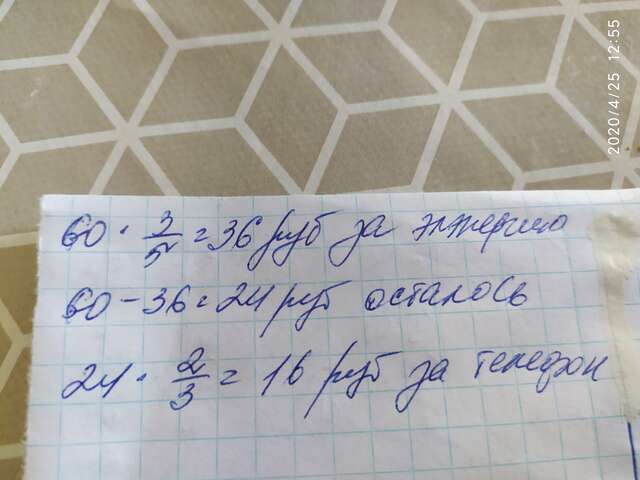 60 · 3/5 = 36 руб за энергию
60 - 36 = 24 руб осталось
24 · 2/3 = 16 руб за телефон
2020/4/25 12:55